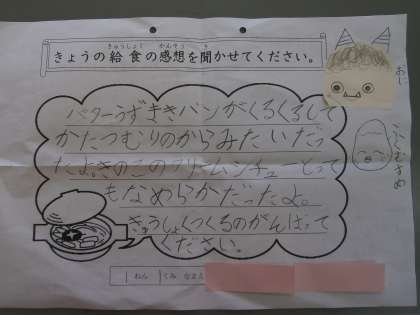 きょうの給食の感想を聞かせてください。
きゅうしょく かんそう き
バターうずまきパンがくろくろして
かたつむりのからみたいだっ
たよ。きのこのクリームシチューとって
もなめらかだったよ。
きゅうしょくつくるのがんばって
ください。
ねん くみ なまえ
おに
ふくむすめ